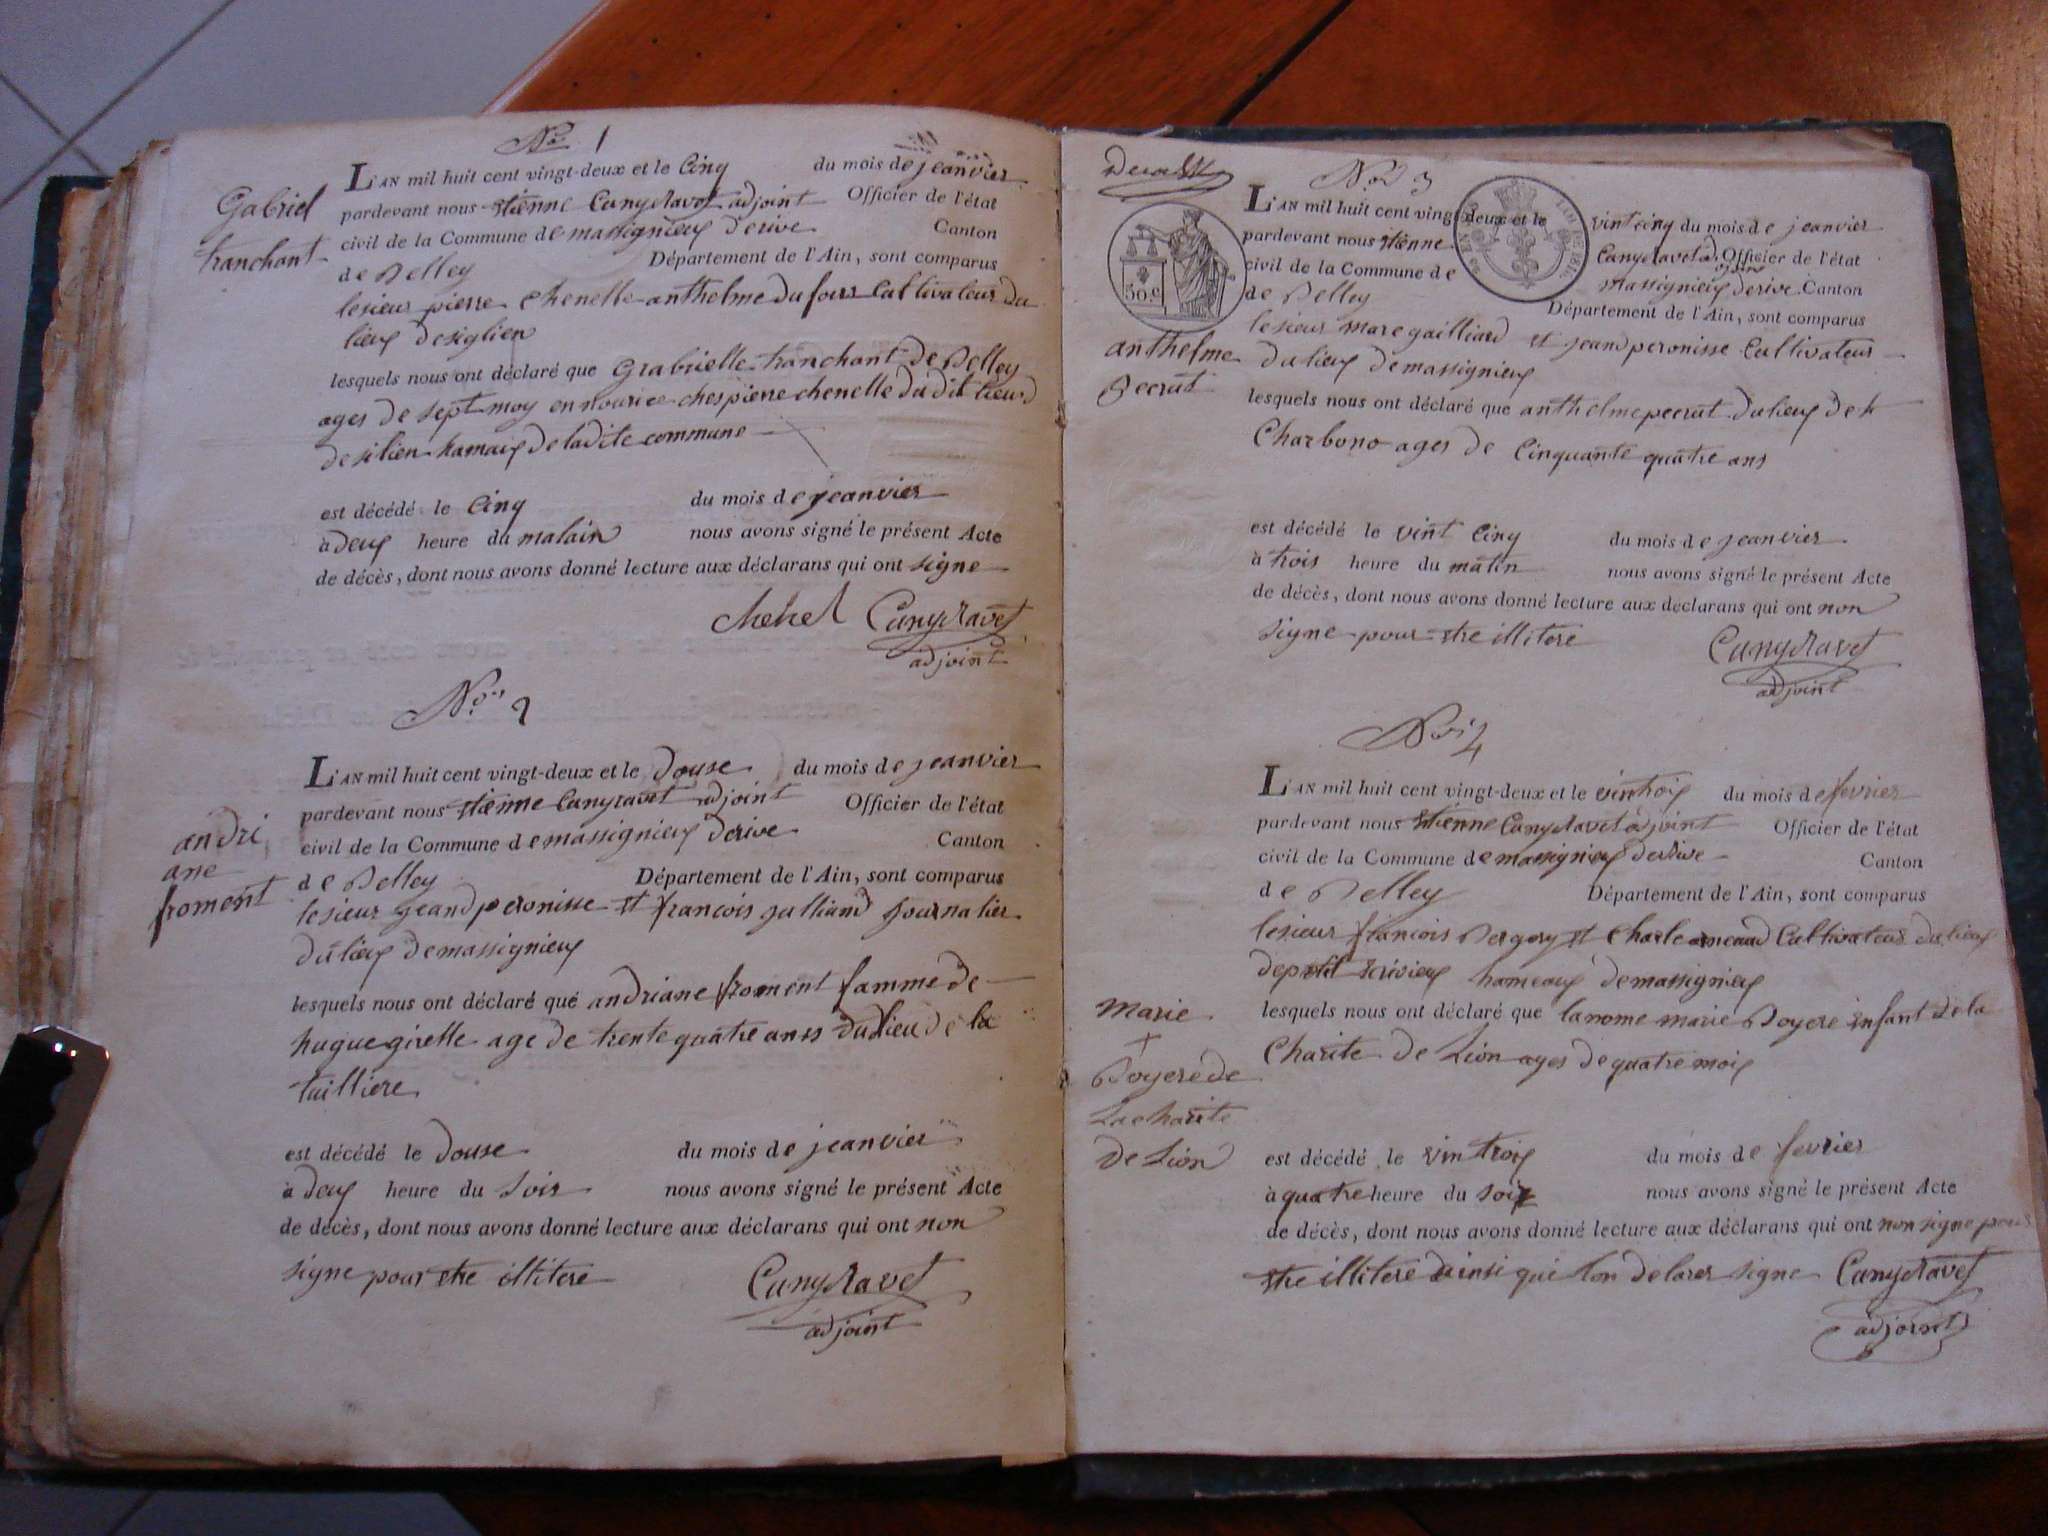 No. 1
Gabriel
tranchant
L'AN mil huit cent vingt-deux et le Cinq du mois de jeanvier
pardevant nous etienne Canydravet adjoint Officier de l'état
civil de la Commune de massignieux derive Canton
de Belley Département de l'Ain, sont comparus
lesieur pierre chenelle anthelme dufour Cultivateur du
lieux desiglien
lesquels nous ont déclaré que Grabrielle tranchant de Belley
ages de sept moy en nourice ches pierre chenelle du dit lieux
de silien hamaux de ladite commune
est décédé le Cinq du mois de jeanvier
à deux heure du matain nous avons signé le présent Acte
de décès, dont nous avons donné lecture aux déclarans qui ont signe
chenel Canydravet
adjoint
No. 2
andri
ane
froment
L'AN mil huit cent vingt-deux et le douse du mois de jeanvier
pardevant nous etienne Canydravet adjoint Officier de l'état
civil de la Commune de massignieux derive Canton
de Belley Département de l'Ain, sont comparus
lesieur jeand peronisse et francois julliand journalier
du lieux demassignieux
lesquels nous ont déclaré que andriane froment famme de
hugue girelle age de trente quatre anss dudlieu de la
tuilliere
est décédé le douse du mois de jeanvier
à deux heure du soir nous avons signé le présent Acte
de décès, dont nous avons donné lecture aux déclarans qui ont non
signe pour etre illitere
Canydravet
adjoint
No. 3
50.c
anthelme
Pecrut
L'AN mil huit cent vingt-deux et le vint cinq du mois de jeanvier
pardevant nous etienne Canydravet adjoint Officier de l'état
civil de la Commune de massignieux derive Canton
de Belley Département de l'Ain, sont comparus
lesieur marc gailliard et jeand peronisse Cultivateur
du lieux demassignieux
lesquels nous ont déclaré que anthelme pecrut du lieux de
Charbono ages de Cinquante quatre ans
est décédé le vint Cinq du mois de jeanvier
à trois heure du matin nous avons signé le présent Acte
de décès, dont nous avons donné lecture aux déclarans qui ont non
signe pour etre illitere
Canydravet
adjoint
No. 4
Marie
Boyere de
Lacharite
de Lion
L'AN mil huit cent vingt-deux et le vintrois du mois de fevrier
pardevant nous etienne Canydravet adjoint Officier de l'état
civil de la Commune de massignieux derive Canton
de Belley Département de l'Ain, sont comparus
lesieur francois Bergery et Charle Cultivateur du lieux
depetit hameaux demassignieux
lesquels nous ont déclaré que lanome marie Boyere enfant de la
Charite de Lion ages de quatre mois
est décédé le vintrois du mois de fevrier
à quatre heure du soir nous avons signé le présent Acte
de décès, dont nous avons donné lecture aux déclarans qui ont non signe pour
etre illitere ainsi que lon delarer signe Canydravet
adjoint